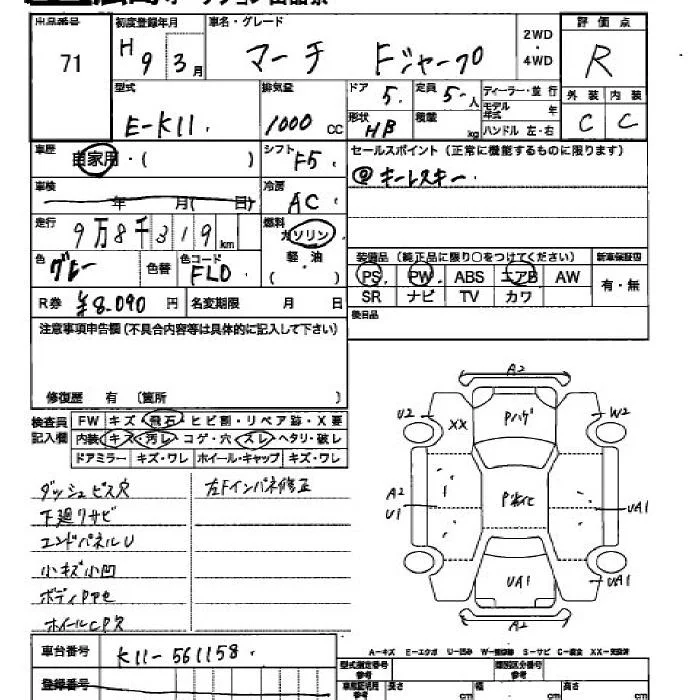 出品番号 初度登録年月 車名・グレード 2WD・4WD 評価点
71 H 9 3月 マーチ Fジャンプ R
型式 排気量 ドア 5. 定員 5 人 ディーラー・並行 外装 内装
モデル年式 年
E-K11. 1000 CC 形状 HB 積載 kg ハンドル 左・右 C C
車歴 自家用・( ) シフト F5 セールスポイント(正常に機能するものに限ります)
車検 年 月( 日) 冷房 AC @キーレスキー.
走行 9万8千319 km 燃料 ガソリン
軽・油
色 グレー 色替 色コード FLD. 装備品(純正品に限り○をつけてください) 新車保証書
PS PW ABS エアB AW 有・無
R券 ¥8.090 円 名変期限 月 日 SR ナビ TV カワ
後日品
注意事項申告欄(不具合内容等は具体的に記入して下さい)
修復歴 有 〔箇所 〕
検査員記入欄 FW キズ・飛石・ヒビ割・リペア跡・X要
内装 キズ・汚レ・コゲ・穴・スレ・ヘタリ・破レ
ドアミラー キズ・ワレ ホイール・キャップ キズ・ワレ
A2
U2 XX Pハゲ W2
A2
U1 Pボケ UA1
UA1 UA1
A2
ダッシュビス穴 左Fインパネ修正
下廻リサビ
エンドパネルU
小キズ小凹
ボディPアセ
ホイールCPス
A-キズ E-エクボ U-凹み W-補修跡 S-サビ C-腐食 XX-交換済
車台番号 K11-561158.
登録番号
型式指定番号 参考 類別区分番号 参考
車庫証明用 参考 長さ cm 幅 cm 高さ cm